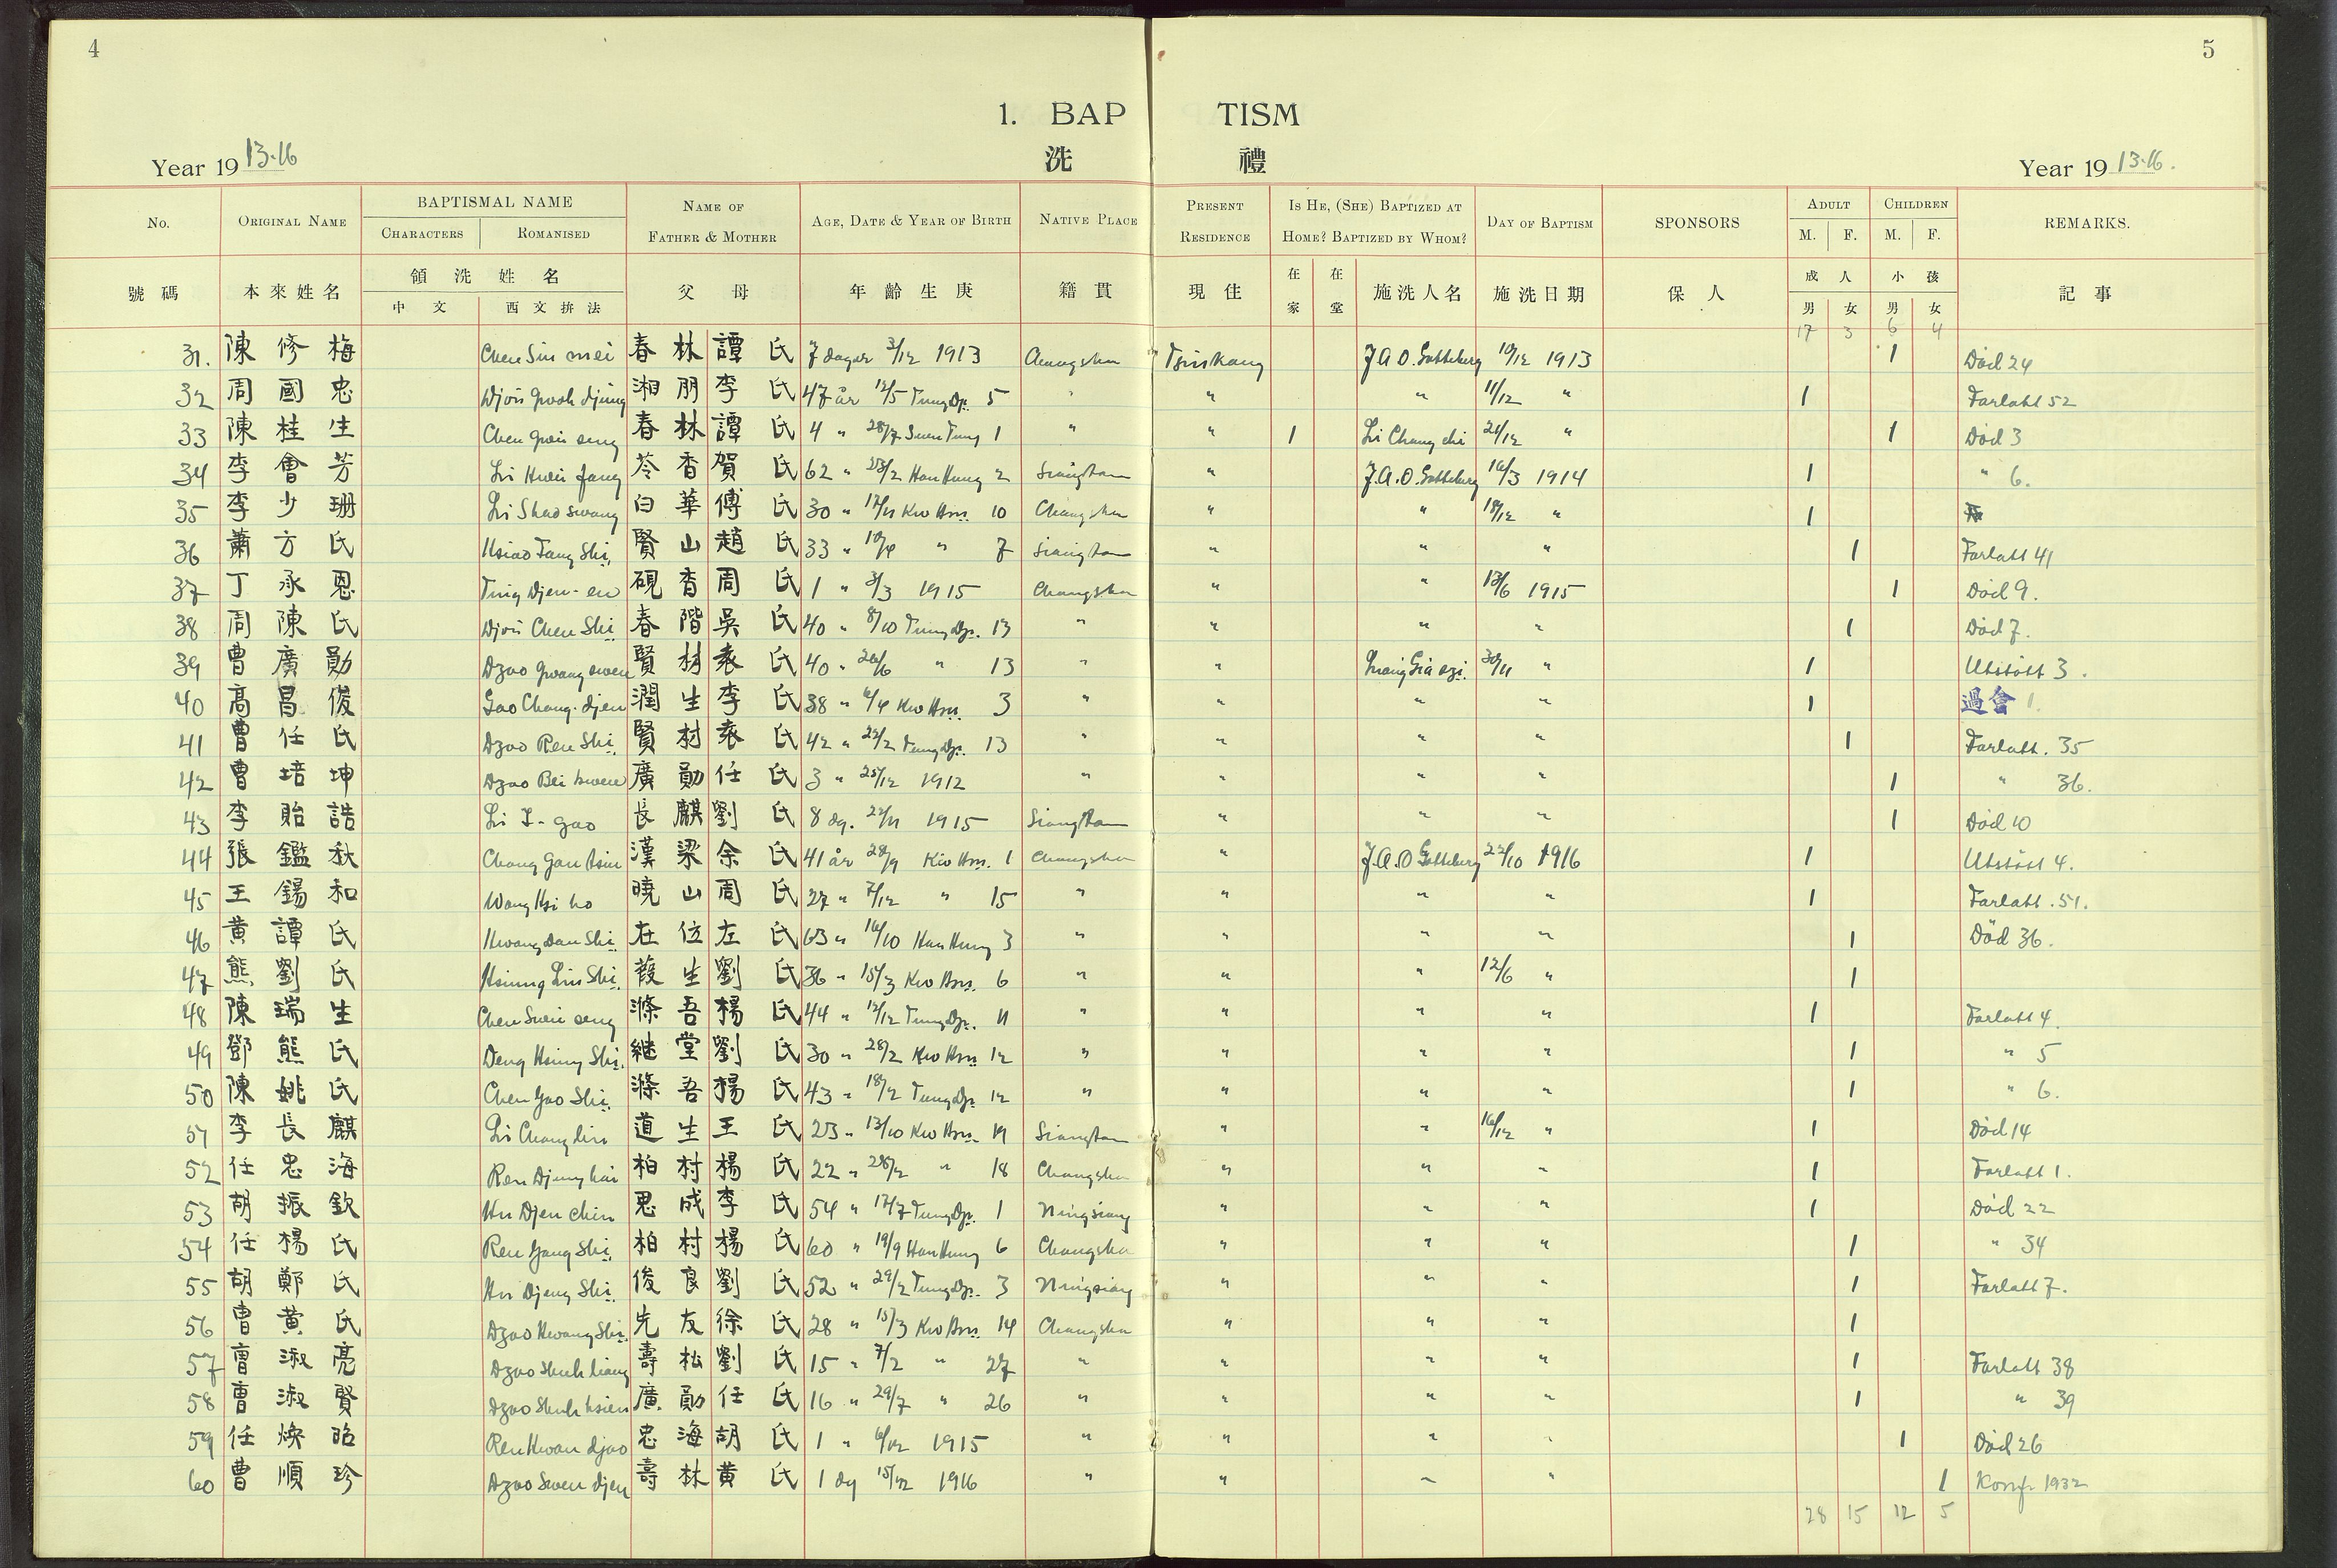 4
5
1. BAP TISM
洗 禮
Year 19 13-16
Year 19 13-16.
No. ORIGINAL NAME BAPTISMAL NAME CHARACTERS ROMANISED NAME OF FATHER & MOTHER AGE, DATE & YEAR OF BIRTH NATIVE PLACE PRESENT RESIDENCE IS HE, (SHE) BAPTIZED AT HOME? BAPTIZED BY WHOM? DAY OF BAPTISM SPONSORS ADULT M. F. CHILDREN M. F. REMARKS.
號碼 本來姓名 領洗姓名 中文 西文拚法 父母 年齡生庚 籍貫 現住 在家 在堂 施洗人名 施洗日期 保人 成人 男 女 小孩 男 女 記事
17 3 6 4
31. 陳修梅 Chen Siu mei 春林 譚氏 7 dagar 3/12 1913 Changsha Tsinkang 10/12 1913 1 Död 24
32 周國忠 Djou Gwoh djung 湘朋 李氏 47 år 12/5 Tung Dji. 5 " " " 11/12 " 1 Farlatt 52
33 陳桂生 Chen Gwei seng 春林 譚氏 4 " 28/7 Suen Tung 1 " " 1 Li Chang chi 21/12 " 1 Död 3
34 李會芳 Li Hwei fang 苓香 賀氏 62 " Han Hung 2 Siangtan " 16/3 1914 1 " 6.
35 李少珊 Li Shao swang 白華 傅氏 30 " Kwo Hsü. 10 Changsha " " 18/12 " 1
36 蕭方氏 Hsiao Fang Shi. 賢山 趙氏 33 " " 7 Siangtan " " " 1 Farlatt 41
37 丁承恩 Ting Djen-en 硯香 周氏 1 " 3/3 1915 Changsha " " 13/6 1915 1 Död 9.
38 周陳氏 Djou Chen Shi. 春階 吳氏 40 " 8/10 Tung Dji. 13 " " " " 1 Död 7.
39 曹廣勛 Dzao Gwang swen 賢村 袁氏 40 " 20/6 " 13 " " 30/11 " 1 Utstött 3.
40 高昌俊 Gao Chang-djen 潤生 李氏 38 " Kwo Hsü. 3 " " " " 1 過會 1.
41 曹任氏 Dzao Ren Shi. 賢村 袁氏 42 " 22/2 Tung Dji. 13 " " " " 1 Farlatt. 35
42 曹培坤 Dzao Bei kwen 廣勛 任氏 3 " 25/12 1912 " " " " 1 " 36.
43 李貽誥 Li I-gao 長麒 劉氏 8 dg. 22/11 1915 Siangtan " " " 1 Död 10
44 張鑑秋 Chang Gan tsiu 漢梁 余氏 41 år 28/9 Kwo Hsü. 1 Changsha " 22/10 1916 1 Utstött 4.
45 王錫和 Wang Hsi ho 曉山 周氏 27 " 7/12 " 15 " " " " 1 Farlatt. 51.
46 黄譚氏 Hwang Dan Shi. 在位 左氏 63 " 16/10 Han Hung 3 " " " " 1 Död 36.
47 熊劉氏 Hsiung Liu Shi. 葭生 劉氏 36 " 15/3 Kwo Hsü. 6 " " " 12/6 " 1
48 陳瑞生 Chen Suei seng 滌吾 楊氏 44 " 12/12 Tung Dji. 11 " " " " 1 Farlatt 4.
49 鄧熊氏 Deng Hsiung Shi. 継堂 劉氏 30 " 28/2 Kwo Hsü 12 " " " " 1 " 5
50 陳姚氏 Chen Yao Shi. 滌吾 楊氏 43 " 18/2 Tung Dji. 12 " " " " 1 " 6.
51 李長麒 Li Chang lin 道生 王氏 23 " 13/10 Kwo Hsü. 19 Siangtan " " 16/12 " 1 Död 14
52 任忠海 Ren Djung hai 柏村 楊氏 22 " 28/2 " 18 Changsha " " " 1 Farlatt 1.
53 胡振欽 Hu Djen chin 思成 李氏 54 " 17/7 Tung Dji. 1 Ningsiang " " " 1 Död 22
54 任楊氏 Ren Yang Shi. 柏村 楊氏 60 " 19/9 Han Hung 6 Changsha " " " 1 " 34
55 胡鄭氏 Hu Djeng Shi. 俊良 劉氏 52 " 29/2 Tung Dji. 3 Ningsiang " " " 1 Farlatt 7.
56 曹黄氏 Dzao Hwang Shi. 先友 徐氏 28 " 15/3 Kwo Hsü. 14 Changsha " " " 1
57 曹淑亮 Dzao Shuh liang 壽松 劉氏 15 " 7/2 " 27 " " " " 1 Farlatt 38
58 曹淑賢 Dzao Shuh hsien 廣勛 任氏 16 " 29/7 " 26 " " " " 1 " 39
59 任煥昭 Ren Hwan djao 忠海 胡氏 1 " 6/12 1915 " " " " 1 Död 26
60 曹順珍 Dzao Swen djen 壽林 黄氏 1 dg 15/12 1916 " " " " 1 Konf. 1932
28 15 12 5